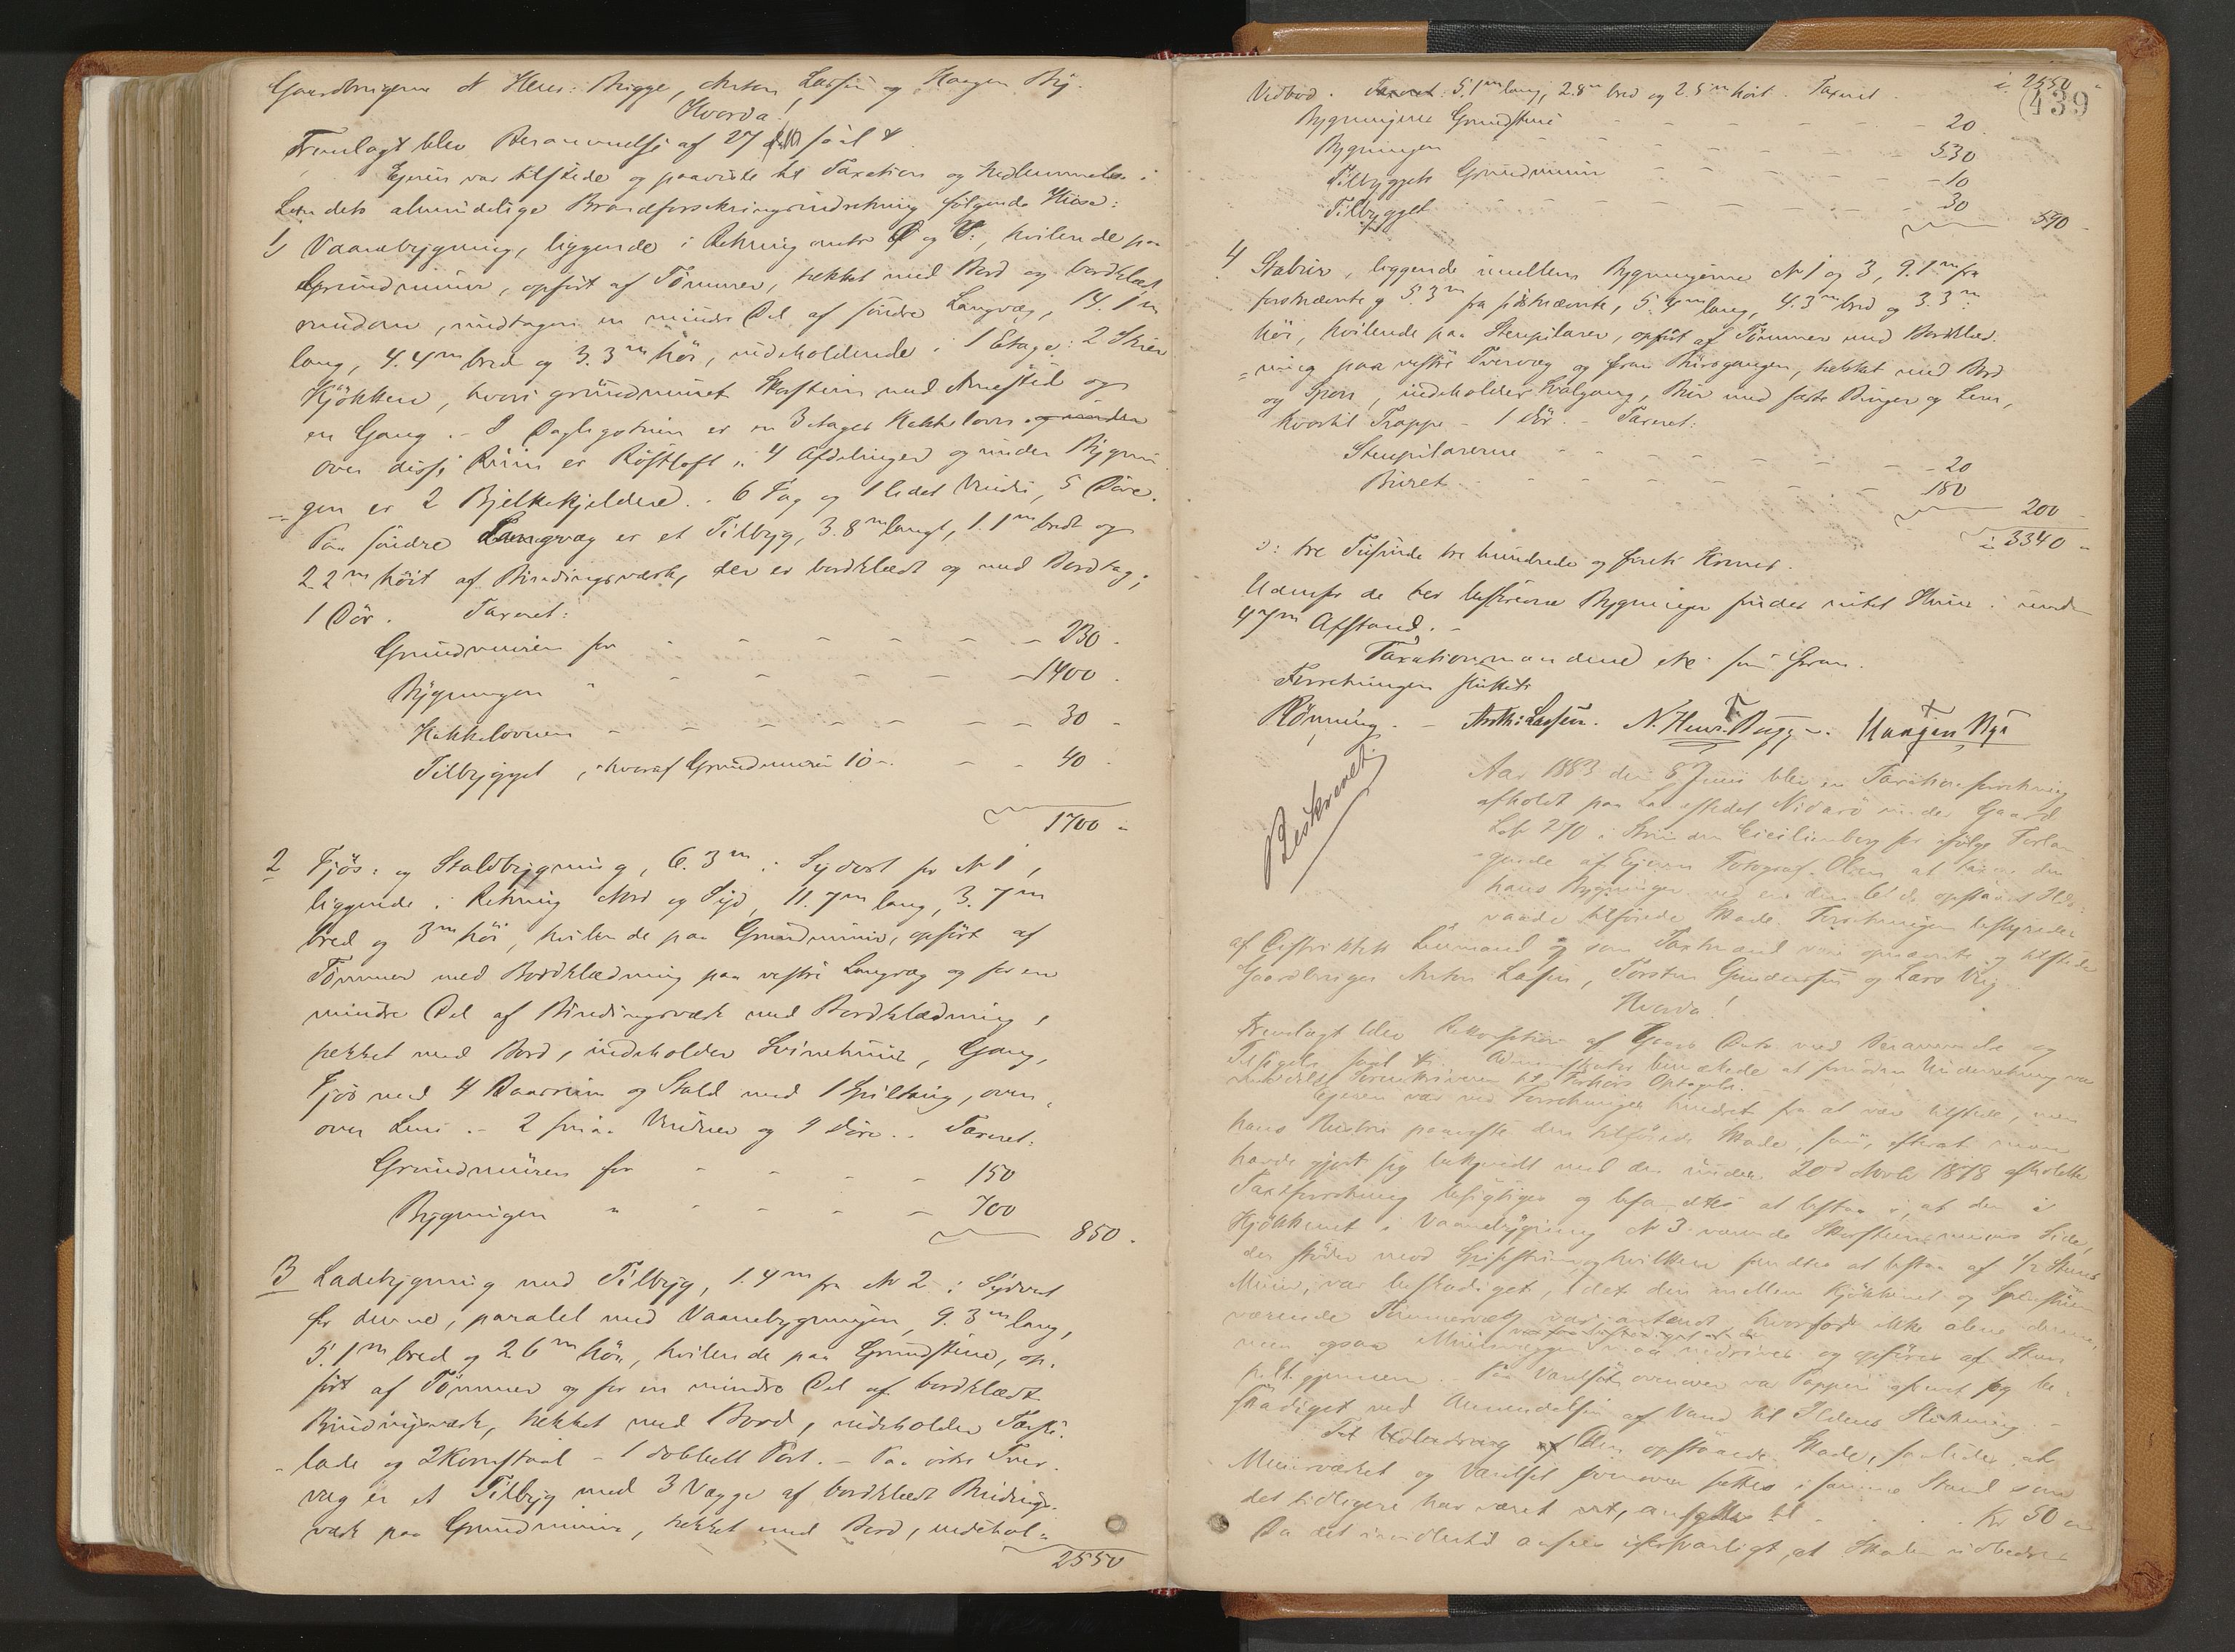 Gaardbrugerne N. Henr. Bugge, Anton Lassen og Haagen By.
Hvorda!
Fremlagt blev Berammelse af 27
Ejeren var tilstede og paaviste til Taxation og Indlemmelse i
Landets almindelige Brandforsikringsindretning følgende Huse:
1, Vaanebygning, liggende i Retning mod Ø og V:, hvilende paa
Grundmuur, opført af Tömmer, tækket med Bord og bordklædt
rundom, undtagen en mindre Del af söndre Langvæg, 14.1 m
lang, 4.4 m bred og 3.3 m höi, indeholdende i 1 Etage: 2 Stuer
Kjökken, hvori grundmuret Skorsten med Arnested og
en Gang. - I Dagligstuen er en 3 etages Kakkelovn
over disse Rum er Röstloft i 4 Afdelinger og under Bygnin-
gen er 2 Bjelkekjeldere. 6 Fag og 1 lidet Vindu, 5 Döre.
Paa söndre Langvæg er et Tilbyg, 3.8 m langt, 1.1 m bredt og
2.2 m höit af Bindingsværk, der er bordklædt og med Bordtag;
1 Dör. Taxeret:
Grundmuren for - - - - - 230 -
Bygningen " - - - - - 1400 -
Kakkelovnen - - - - - 30 -
Tilbygget, hvoraf Grundmuren 10 - - - 40 -
1700 -
2 Fjös- og Staldbygning, 6.3 m i Sydost for No 1,
liggende i Retning Nord og Syd, 11.7 m lang, 3.7 m
bred og 3 m höi, hvilende paa Grundmuur, opfört af
Tömmer med Bordklædning paa vestre Langvæg og for en
mindre Del af Bindingsværk med Bordklædning,
tækket med Bord, indeholder Svinehuus, Gang,
Fjös med 4 Baasrum og Stald med 1 Spiltaug, oven-
over Lem. - 2 smaa Vinduer og 4 Döre. Taxeret:
Grundmuren for - - - - 150
Bygningen " - - - - 700
850 -
3 Ladebygning med Tilbyg, 1.4 m fra No 2 i Sydvest
for denne, paralel med Vaanebygningen, 9.3 m lang,
5.1 m bred og 2.6 m höi, hvilende paa Grundstene, op-
fört af Tömmer og for en mindre Del af bordklædt
Bindingsværk, tækket med Bord, indeholder Tærske-
lade og 2 Kornstaal - 1 dobbelt Port. - Paa östre Tver-
væg er et Tilbyg med 3 Vægge af bordklædt Bindings-
værk paa Grundmuur, tækket med Bord, indehol-
2550
439
Vedbod. 5.1 m lang, 2.8 m bred og 2.5 m höit. Taxeret 2550 -
Bygningens Grundstene - - - - 20
Bygningen - - - - 530
Tilbyggets Grundmuur - - - - 10
Tilbygget - - - - 30
590 -
4 Stabur, liggende imellem Bygningerne No 1 og 3, 9.1 m fra
förstnævnte og 5.3 m fra sidstnævnte, 5.4 m lang, 4.3 m bred og 3.3 m
höi, hvilende paa Stenpilarer, opfört af Tömmer med Bordklæd-
ning paa vestre Tvervæg og foran Bursgangen, tækket med Bord
og Spon, indeholder Svalgang, Bur med faste Binger og Lem,
hvortil Trappe - 1 Dör. - Taxeret:
Stenpilarerne - - - - 20
Buret - - - - 180
200 -
3340 -
o: tre Tusinde tre hundrede og firti Kroner.
Udenfor de her beskrevne Bygninger findes intet Huus i under
47 m Afstand. -
Taxationsmændene
Forretningen sluttet
Rönning. - Anth: Lassen. N. Henr. Bugge. Haagen Bye
Beskrevet
Aar 1883 den 8 Juni blev en Taxtionsforretning
afholdt paa Nidarö under Gaard
Löb 270 i Strinden Ceciliienberg for ifölge Forlan-
gende af Ejeren Fotograf Olsen at taxere den
hans Bygninger ved en den 6' ds opstaaet Ilds-
vaade tilföiede Skade. Forretningen bestyredes
af Distriktets Lensmand og som Taxtmænd vare opnævnte og tilstede
Gaardbruger Anton Lassen, Torsten Gundersen og Lars Vig
Hvorda!
Fremlagt blev Rekvisition af Gaars Dato med Berammelse og
Ejeren var ved Forretninger hindret fra at være tilstede, men
hans Hustru paaviste den tilföiede Skade, som, efterat man
havde gjort sig bekjendt med den under 20de Novbr 1878 afholdte
Taxtforretning besigtiges og befandtes at bestaa i, at den i
Kjökkenet i Vaanebygning No 3 værende Skorstensmuurs Side,
der stöder mod Spisestuen og hvilken fandtes at bestaa af 1/2 Stens
Muur, var beskadiget, idet den mellem Kjökkenet og Spisestuen
værende Tömmervæg var antændt, hvorfor ikke alene denne,
men ogsaa Muurvæggen maa nedrives og opföres af Sten
skadiget ved Anvendelsen af Vand til Ildens Slukning. -
Til Udbedring af den opstaaede Skade, saaledes at
Muurværket og Værelset sættes i samme Stand som
det tidligere har været i, ansattes til - - - Kr 50
Da det imidlertid ansees uforsvarligt, at Skaden udbedres